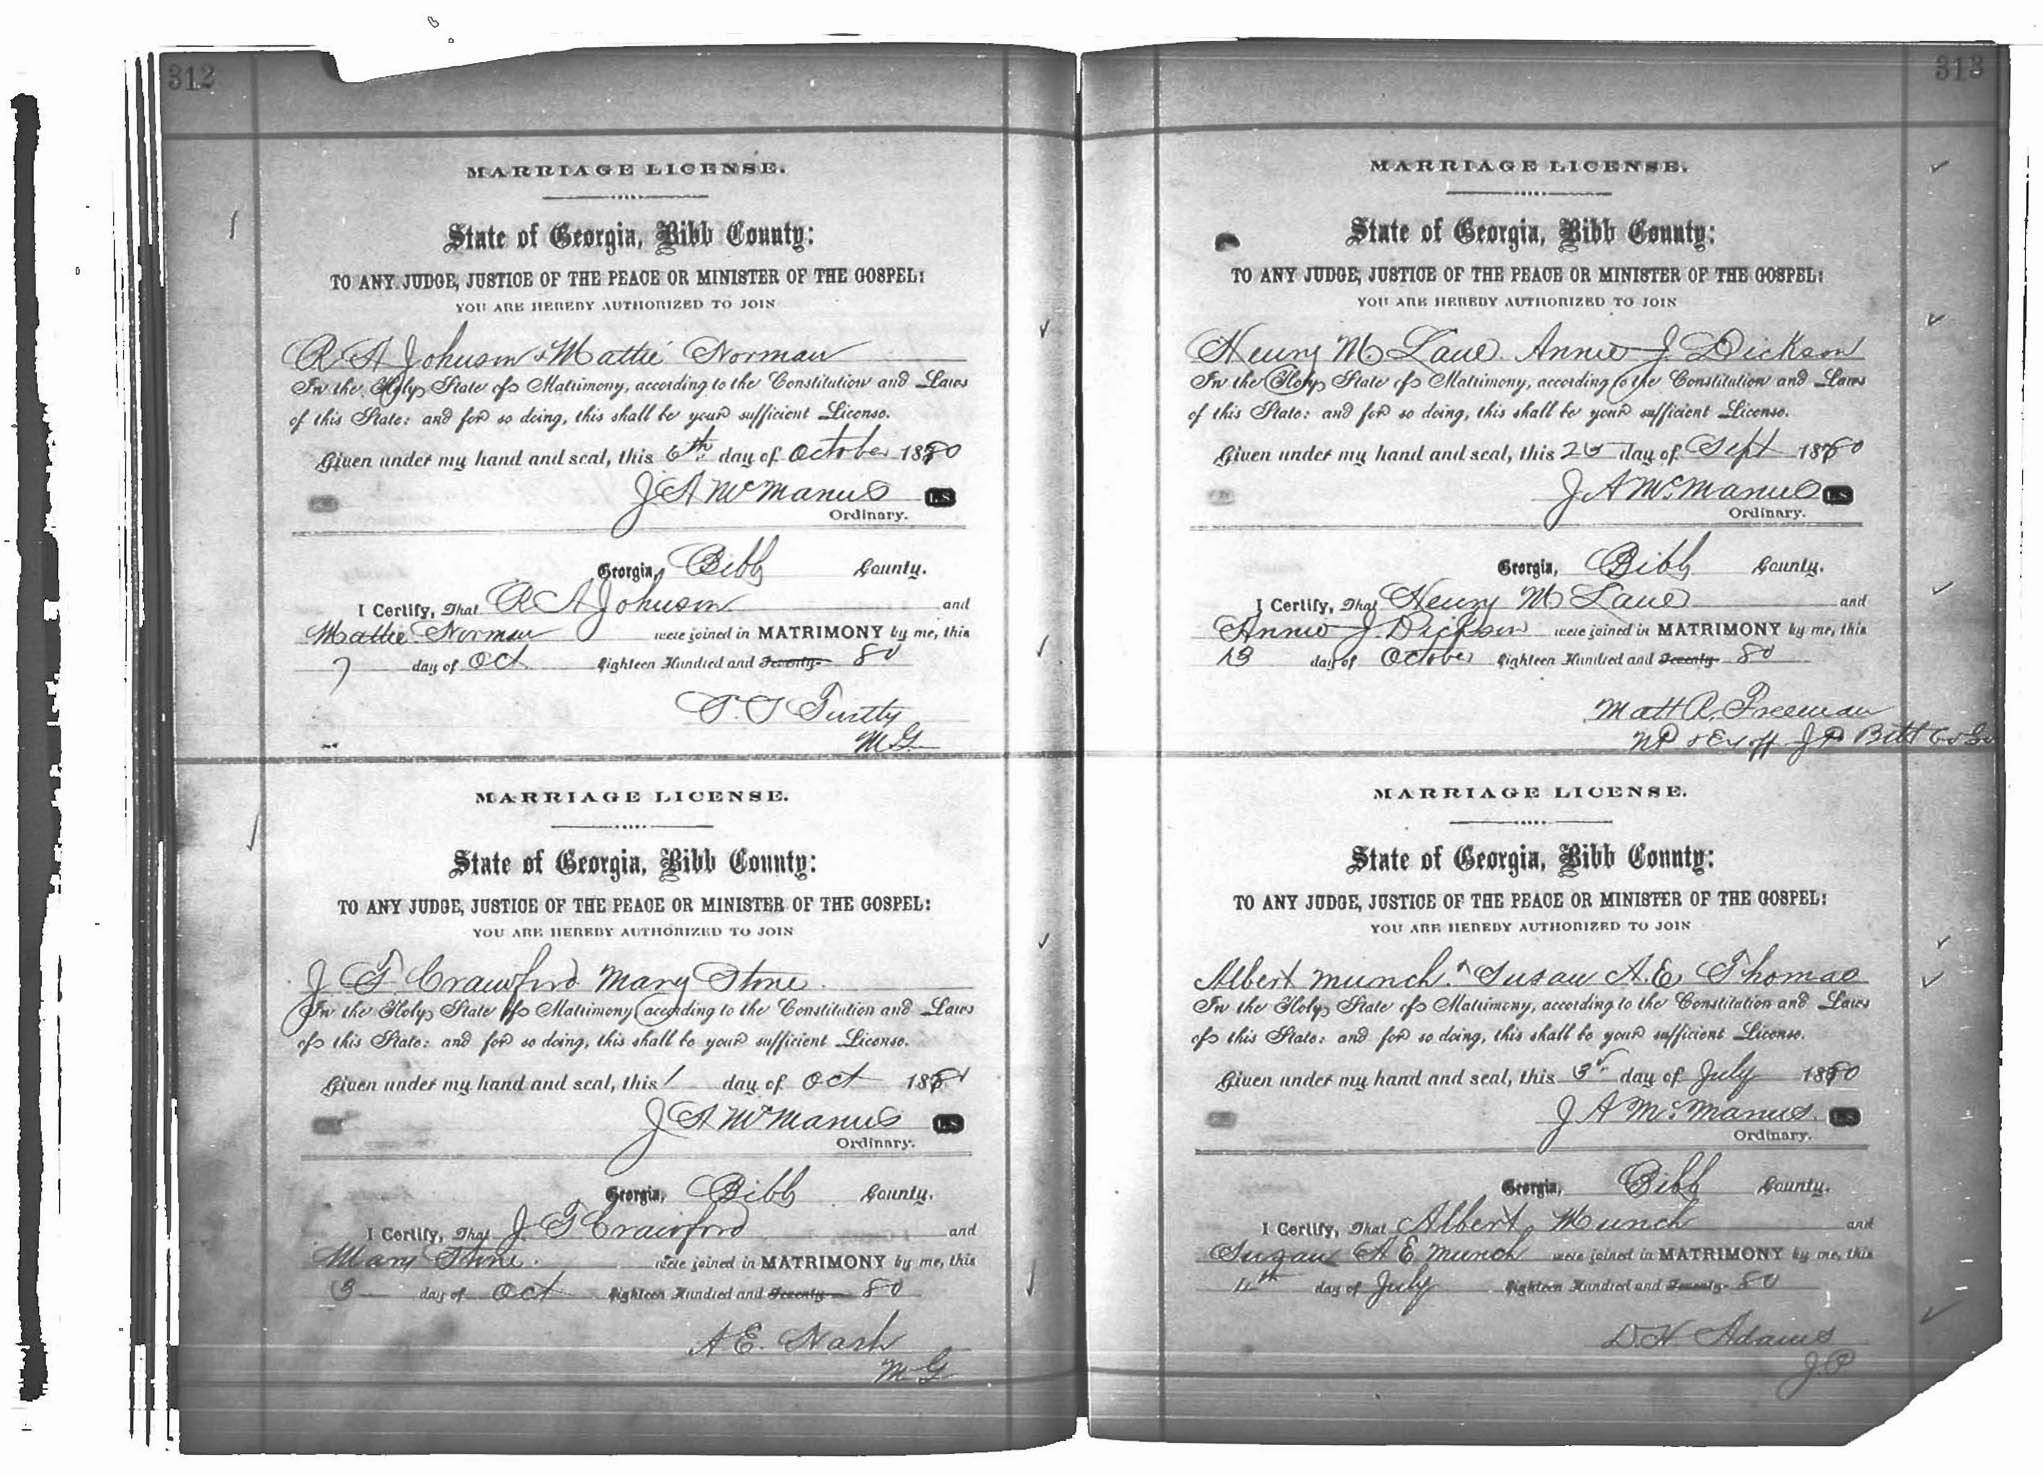 312
MARRIAGE LICENSE.
State of Georgia, Bibb County:
TO ANY JUDGE, JUSTICE OF THE PEACE OR MINISTER OF THE GOSPEL:
YOU ARE HEREBY AUTHORIZED TO JOIN
R A Johnson & Mattie Norman
In the Holy State of Matrimony, according to the Constitution and Laws
of this State: and for so doing, this shall be your sufficient License.
Given under my hand and seal, this 6th day of October 1880
J A McManus L.S.
Ordinary.
Georgia, Bibb County.
I Certify, That R A Johnson and
Mattie Norman were joined in MATRIMONY by me, this
7 day of Oct Eighteen Hundred and Seventy 80
M G
MARRIAGE LICENSE.
State of Georgia, Bibb County:
TO ANY JUDGE, JUSTICE OF THE PEACE OR MINISTER OF THE GOSPEL:
YOU ARE HEREBY AUTHORIZED TO JOIN
J T Crawford Mary Stone
In the Holy State of Matrimony, according to the Constitution and Laws
of this State: and for so doing, this shall be your sufficient License.
Given under my hand and seal, this 1 day of Oct
J A McManus L.S.
Ordinary.
Georgia, Bibb County.
I Certify, That J T Crawford and
Mary Stone. were joined in MATRIMONY by me, this
3 day of Oct Eighteen Hundred and Seventy 80
A E. Nash
M G
313
MARRIAGE LICENSE.
State of Georgia, Bibb County:
TO ANY JUDGE, JUSTICE OF THE PEACE OR MINISTER OF THE GOSPEL:
YOU ARE HEREBY AUTHORIZED TO JOIN
Henry M Lane. Annie J. Dickson
In the Holy State of Matrimony, according to the Constitution and Laws
of this State: and for so doing, this shall be your sufficient License.
Given under my hand and seal, this 25 day of Sept 1880
J A McManus L.S.
Ordinary.
Georgia, Bibb County.
I Certify, That Henry M Lane and
Annie J. Dickson were joined in MATRIMONY by me, this
13 day of October Eighteen Hundred and Seventy 80
Matt R. Freeman
NP & Ex off J P Bibb Co Ga
MARRIAGE LICENSE.
State of Georgia, Bibb County:
TO ANY JUDGE, JUSTICE OF THE PEACE OR MINISTER OF THE GOSPEL:
YOU ARE HEREBY AUTHORIZED TO JOIN
Albert Munch. & Susan A. E. Thomas
In the Holy State of Matrimony, according to the Constitution and Laws
of this State: and for so doing, this shall be your sufficient License.
Given under my hand and seal, this 3r day of July 1880
J A McManus. L.S.
Ordinary.
Georgia, Bibb County.
I Certify, That Albert Munch and
Suzan A E Munch were joined in MATRIMONY by me, this
4th day of July Eighteen Hundred and Seventy 80
D. H. Adams
J. P